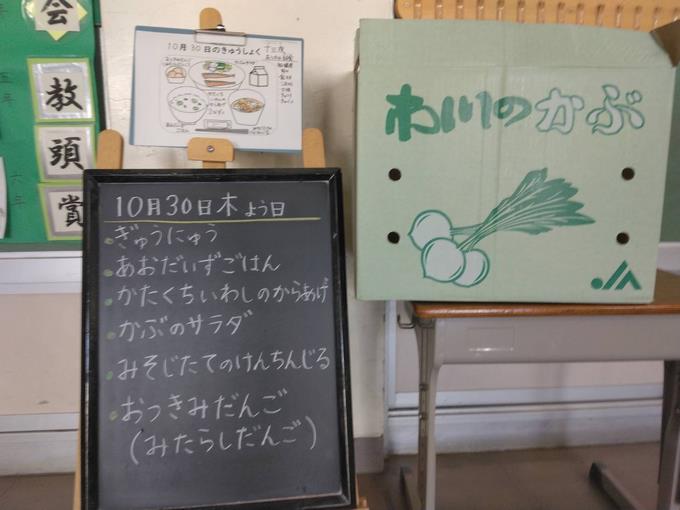 会
教
頭
賞
五年
六年
10月30日のきゅうしょく
十三夜
10月30日木よう日
ぎゅうにゅう
あおだいずごはん
かたくちいわしのからあげ
かぶのサラダ
みそじたてのけんちんじる
おつきみだんご
(みたらしだんご)
木川のかぶ
JA